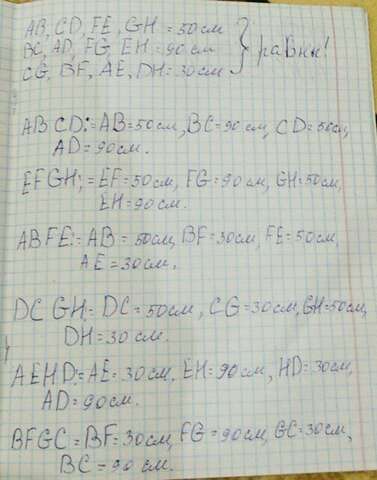 AB, CD, FE, GH = 50см
BC, AD, FG, EH = 90см } равны!
CG, BF, AE, DH = 30см
ABCD: = AB = 50см, BC = 90см, CD = 50см,
AD = 90см.
EFGH: = EF = 50см, FG = 90см, GH = 50см,
EH = 90см.
ABFE: = AB = 50см, BF = 30см, FE = 50см,
AE = 30см.
DCGH: = DC = 50см, CG = 30см, GH = 50см,
DH = 30см.
AEHD: = AE = 30см, EH = 90см, HD = 30см,
AD = 90см.
BFGC = BF = 30см, FG = 90см, GC = 30см,
BC = 90см.